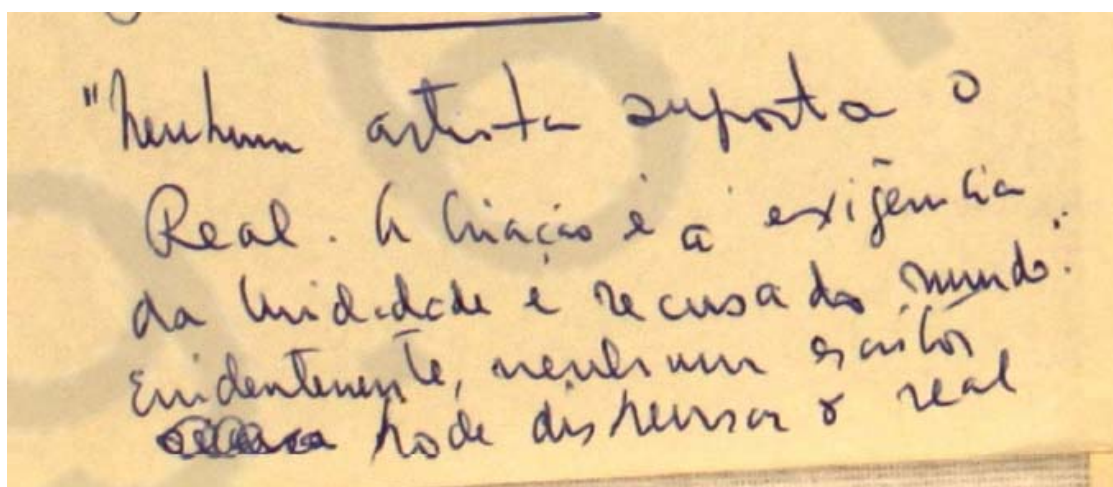 "Nenhum artista suporta o
Real. A criação é a exigência
da unidade e recusa do mundo."
Evidentemente, nenhum escritor
pode dispensar o real